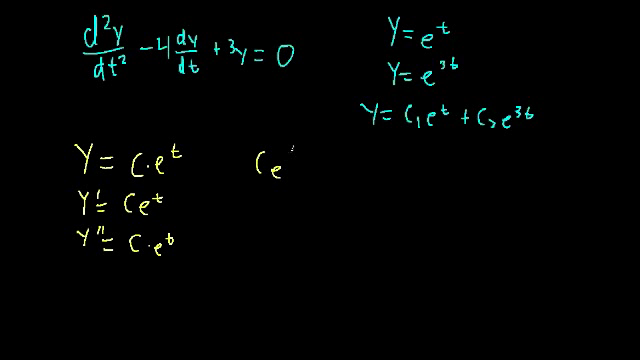 d²y/dt² - 4 dy/dt + 3y = 0
y = e^t
y = e^3t
y = c₁e^t + c₂e^3t
y = c·e^t
ce
y' = ce^t
y'' = c·e^t